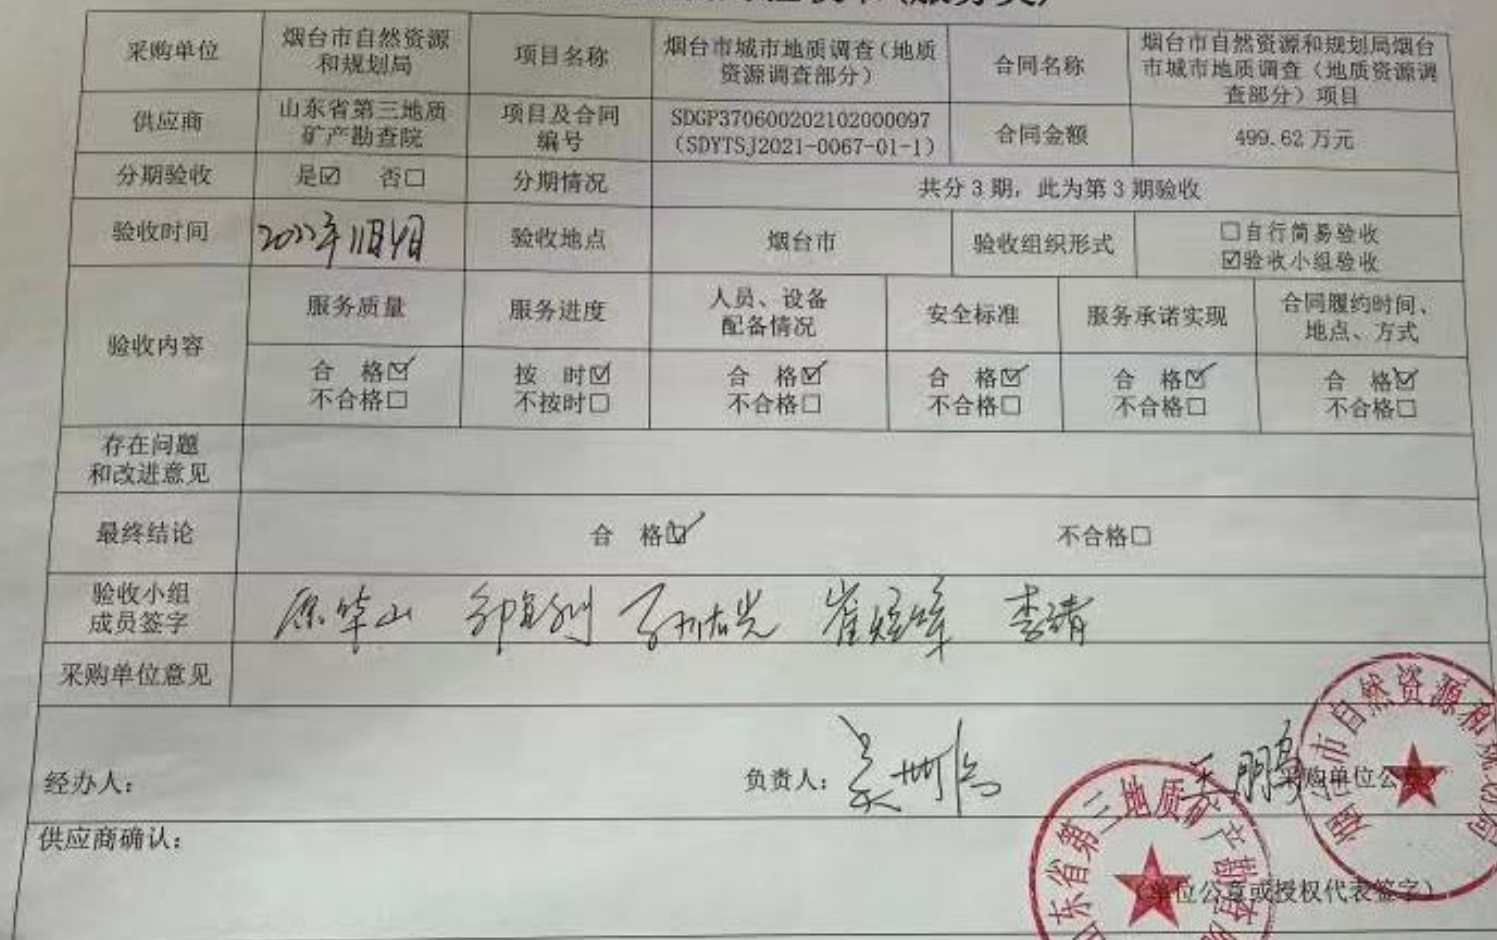 (服务类)
采购单位
烟台市自然资源
和规划局
项目名称
烟台市城市地质调查(地质
资源调查部分)
合同名称
烟台市自然资源和规划局烟台
市城市地质调查(地质资源调
查部分)项目
供应商
山东省第三地质
矿产勘查院
项目及合同
编号
SDGP370600202102000097
(SDYTSJ2021-0067-01-1)
合同金额
499.62万元
分期验收
是☑ 否□
分期情况
共分3期,此为第3期验收
验收时间
2022年11月4日
验收地点
烟台市
验收组织形式
□自行简易验收
☑验收小组验收
验收内容
服务质量
服务进度
人员、设备
配备情况
安全标准
服务承诺实现
合同履约时间、
地点、方式
合 格☑
不合格□
按 时☑
不按时□
合 格☑
不合格□
合 格☑
不合格□
合 格☑
不合格□
合 格☑
不合格□
存在问题
和改进意见
最终结论
合 格☑
不合格□
验收小组
成员签字
李靖
采购单位意见
经办人:
负责人:
采购单位公章
烟台市自然资源和规划局
供应商确认:
山东省第三地质矿产勘查院
(单位公章或授权代表签字)